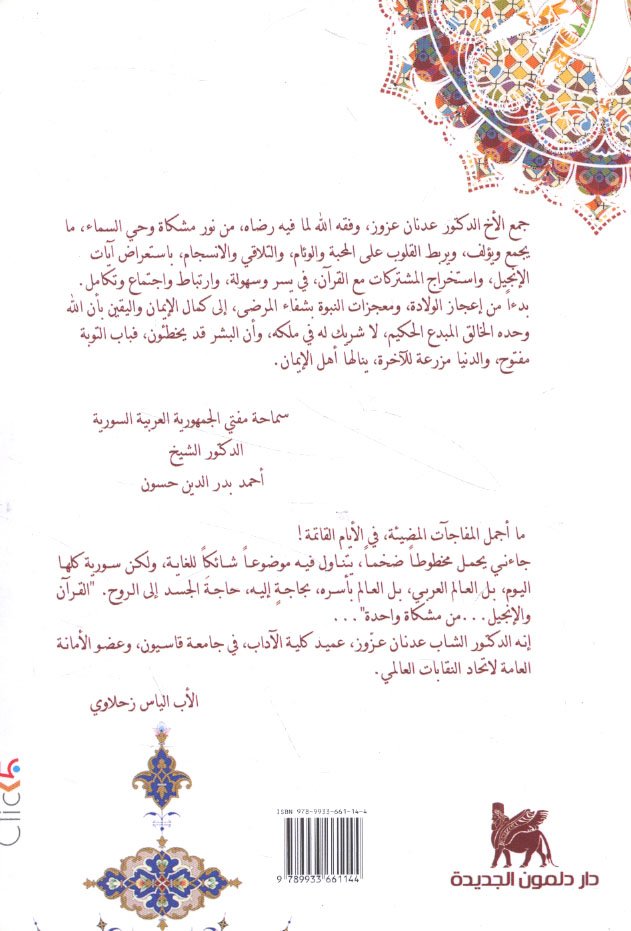 جمع الأخ الدكتور عدنان عزوز، وفقه الله لما فيه رضاه، من نور مشكاة وحي السماء، ما
يجمع ويؤلف، ويربط القلوب على المحبة والوئام، والتلاقي والانسجام، باستعراض آيات
الإنجيل، واستخراج المشتركات مع القرآن، في يسر وسهولة، وارتباط واجتماع وتكامل.
بدءاً من إعجاز الولادة، ومعجزات النبوة بشفاء المرضى، إلى كمال الإيمان واليقين بأن الله
وحده الخالق المبدع الحكيم، لا شريك له في ملكه، وأن البشر قد يخطئون، فباب التوبة
مفتوح، والدنيا مزرعة للآخرة، ينالها أهل الإيمان.
سماحة مفتي الجمهورية العربية السورية
الدكتور الشيخ
أحمد بدر الدين حسون
ما أجمل المفاجآت المضيئة، في الأيام القاتمة!
جاءني يحمل مخطوطاً ضخماً، يتناول فيه موضوعاً شائكاً للغاية، ولكن سورية كلها
اليوم، بل العالم العربي، بل العالم بأسره، بحاجةٍ إليه، حاجةَ الجسد إلى الروح. "القرآن
والإنجيل...من مشكاة واحدة"...
إنه الدكتور الشاب عدنان عزّوز، عميد كلية الآداب، في جامعة قاسيون، وعضو الأمانة
العامة لاتحاد النقابات العالمي.
الأب الياس زحلاوي
ISBN 978-9933-661-14-4
9 789933 661144
دار دلمون الجديدة
Click